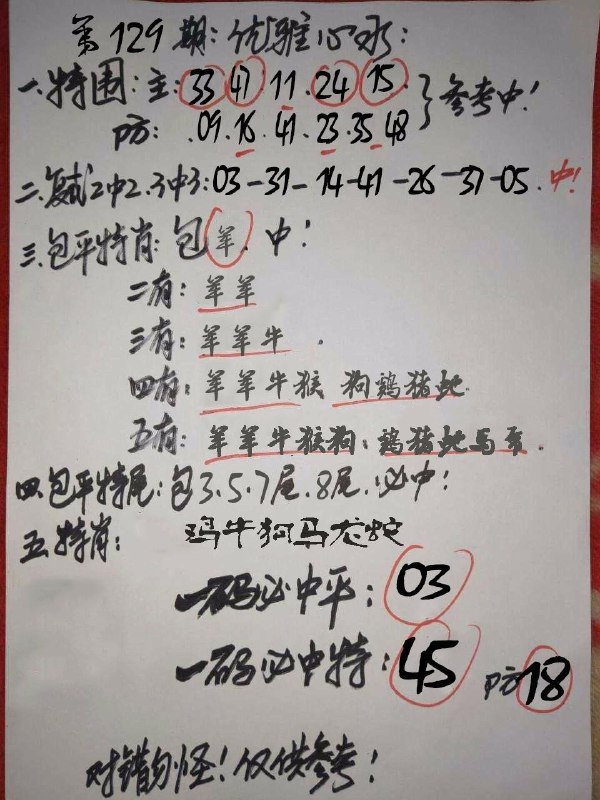 第129期:优雅心水:
一.特围:主:33 47.11.24.15
P方: .09.16.41.23.35.48 }参考中!
二.复试2中2.3中3:03-31-14-41-26-37-05.中!
三.包平特肖:包羊.中!
二有:羊羊
三有:羊羊牛.
四有:羊羊牛猴 狗鸡猪蛇.
五有:羊羊牛猴狗.鸡猪蛇马.
四.包平特尾:包3.5.7尾.8尾.必中!
五.特肖: 鸡牛狗马龙蛇
一码必中平:03
一码必中特:45 P方18
对错勿怪!仅供参考!